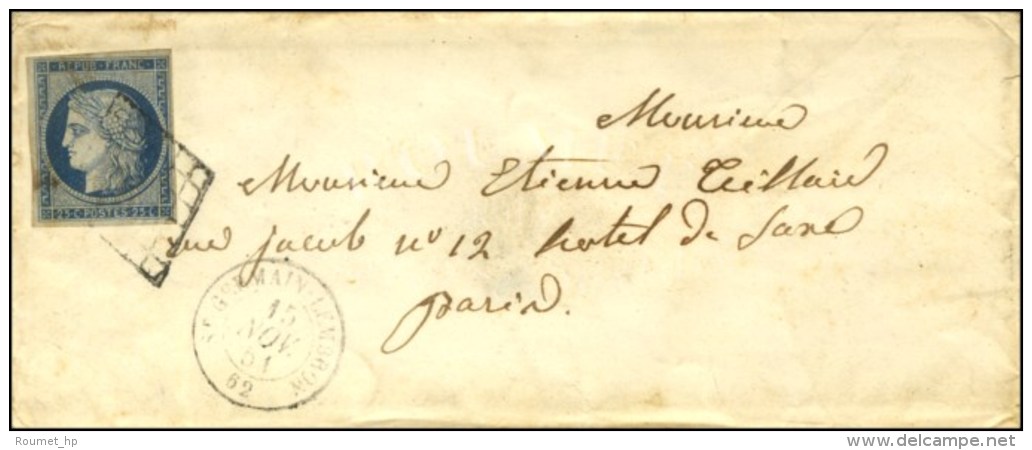 REPUB · FRANC ·
25 · C POSTES 25 · C
Monsieur
Monsieur Etienne Teillard
rue jacob nº 12 hotel de Saxe
paris.
ST GERMAIN-LEMBRON
15
NOV.
51
62
Roumet_hp
www.delcampe.net